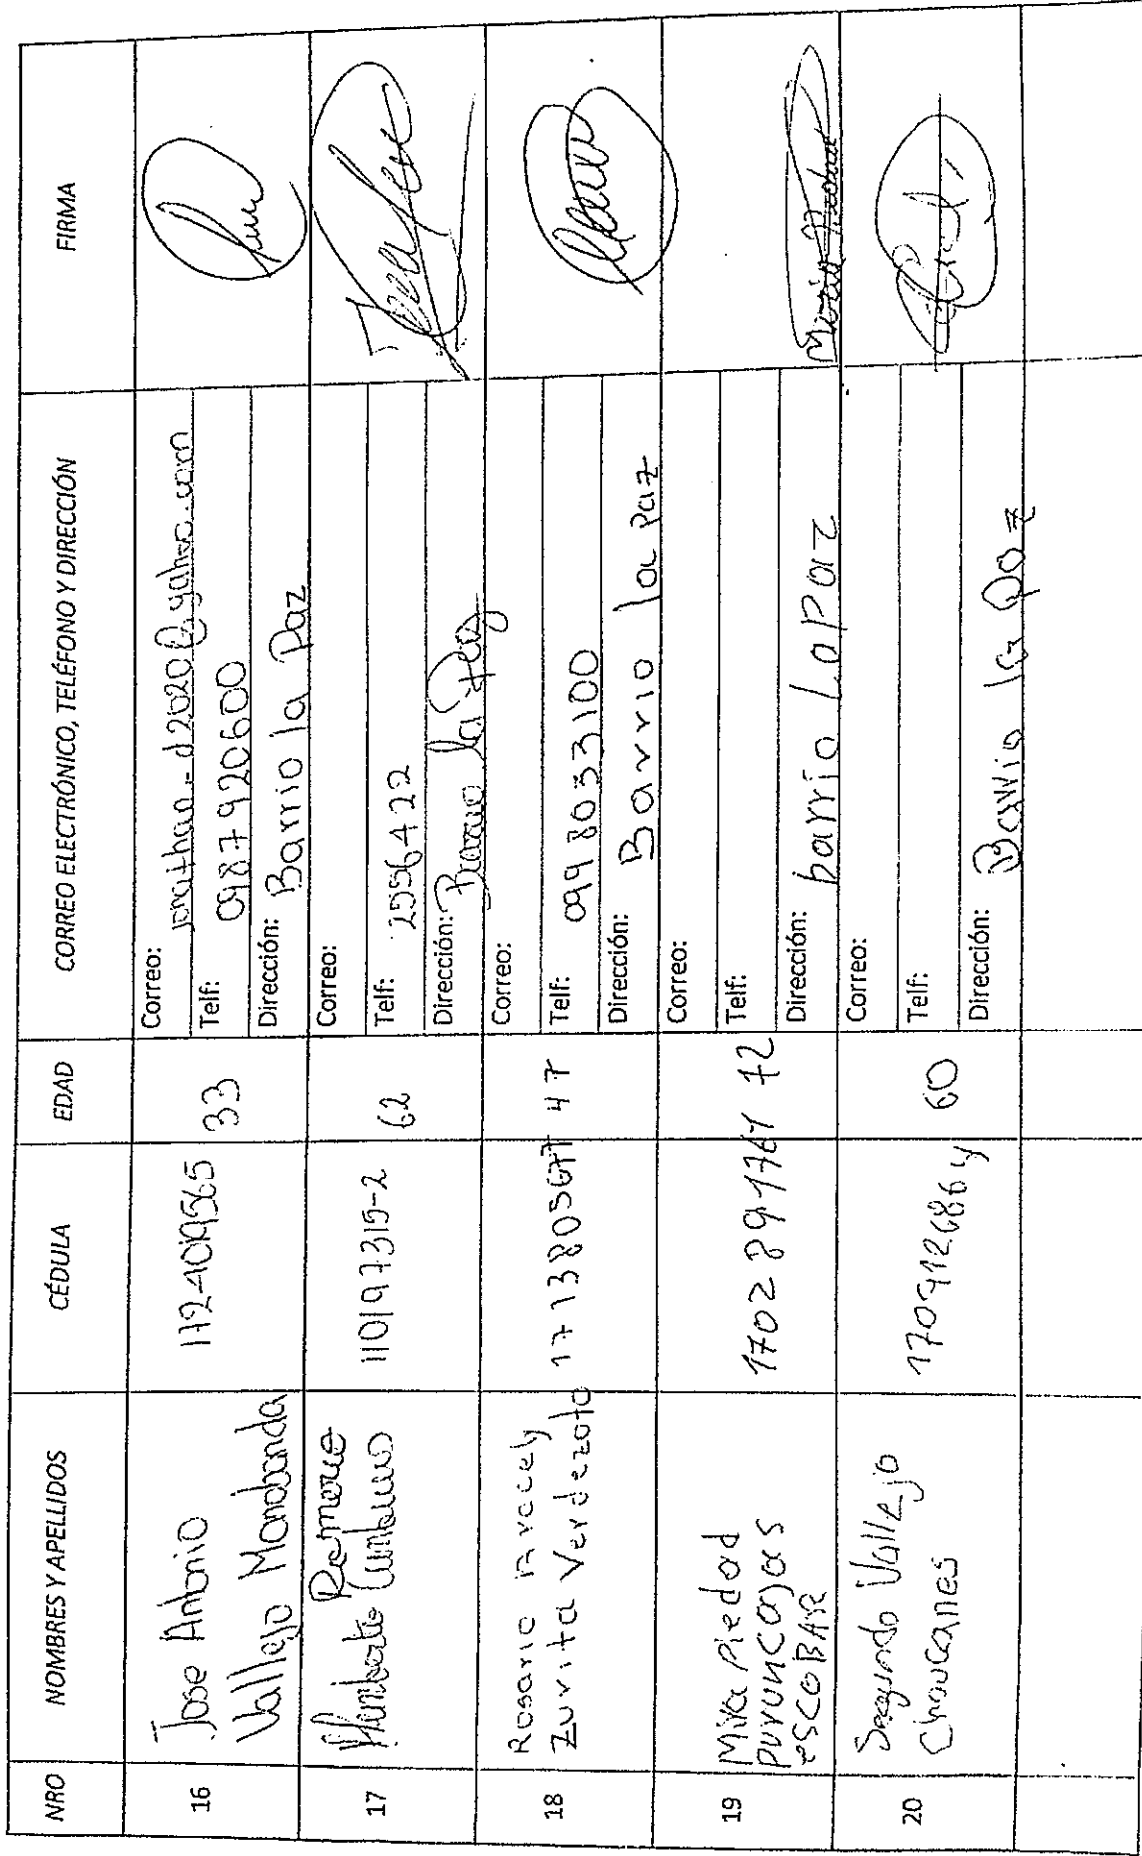 NRO NOMBRES Y APELLIDOS CÉDULA EDAD CORREO ELECTRÓNICO, TELÉFONO Y DIRECCIÓN FIRMA
16
Jose Antonio
Vallejo Manobanda
1724019565
33
Correo: jonathan-d2020@yahoo.com
Telf: 0987920600
Dirección: Barrio la Paz
17
Romero
Humberto
110197315-2
62
Correo:
Telf: 2556422
Dirección: Barrio la Paz
18
Rosario Aracely
Zurita Verdezoto
47
Correo:
Telf: 0998033100
Dirección: Barrio la paz
19
Mira Piedad
puruncajas
escoBAR
1702891767
72
Correo:
Telf:
Dirección: barrio La Paz
20
Segundo Vallejo
60
Correo:
Telf:
Dirección: Barrio la Paz